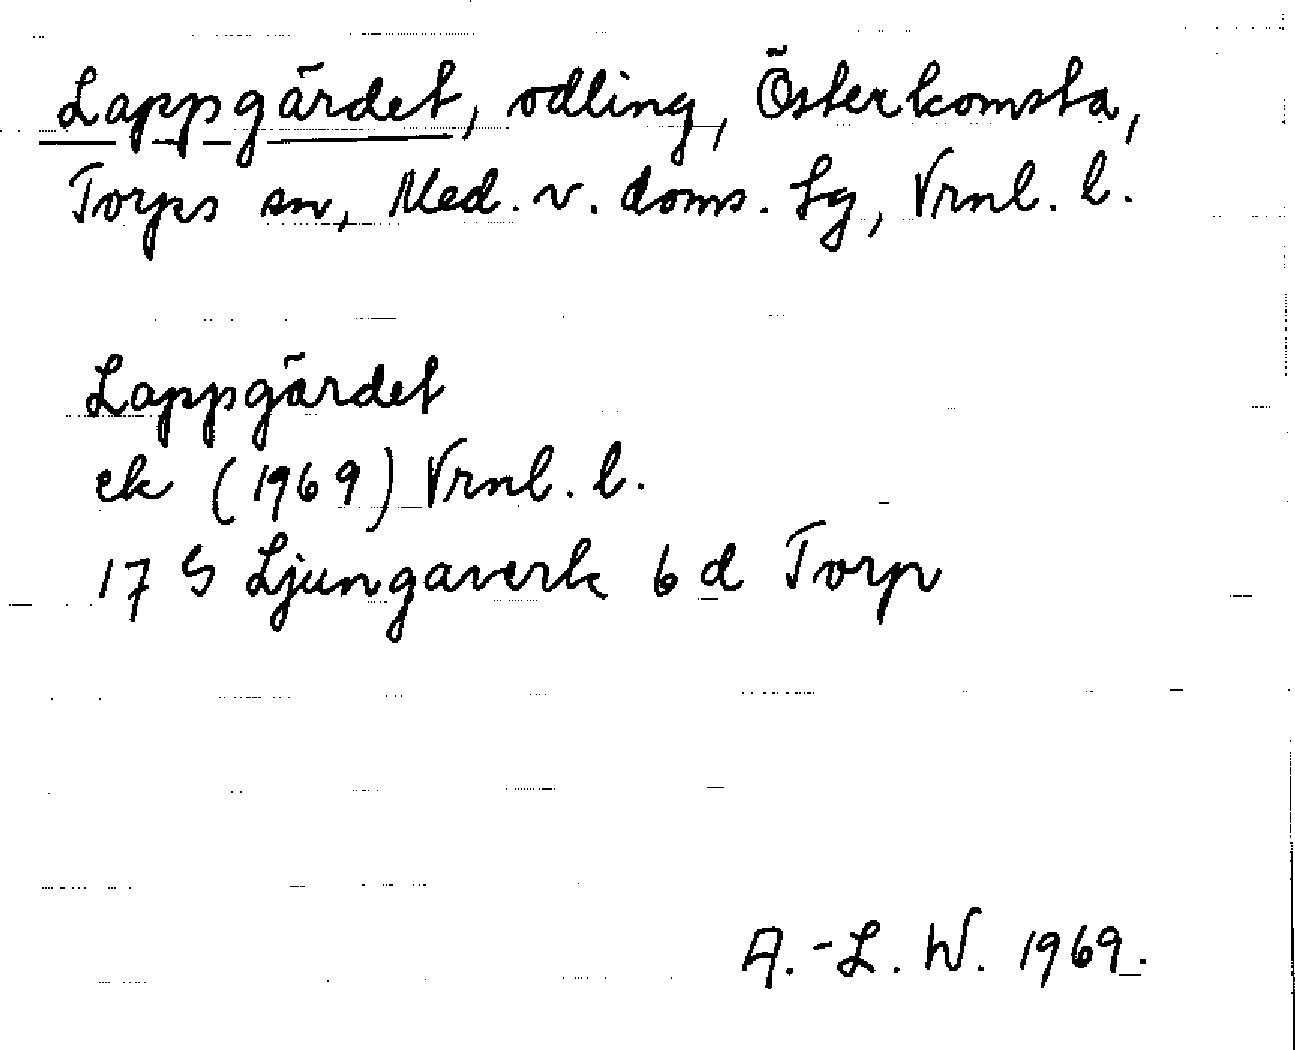 Lappgärdet, odling, Österkomsta,
Torps sn, Med. v. doms. lg, Vrnl. l.
Lappgärdet
ek (1969) Vrnl. l.
17 G Ljungaverk 6 d Torp
A.-L. W. 1969.